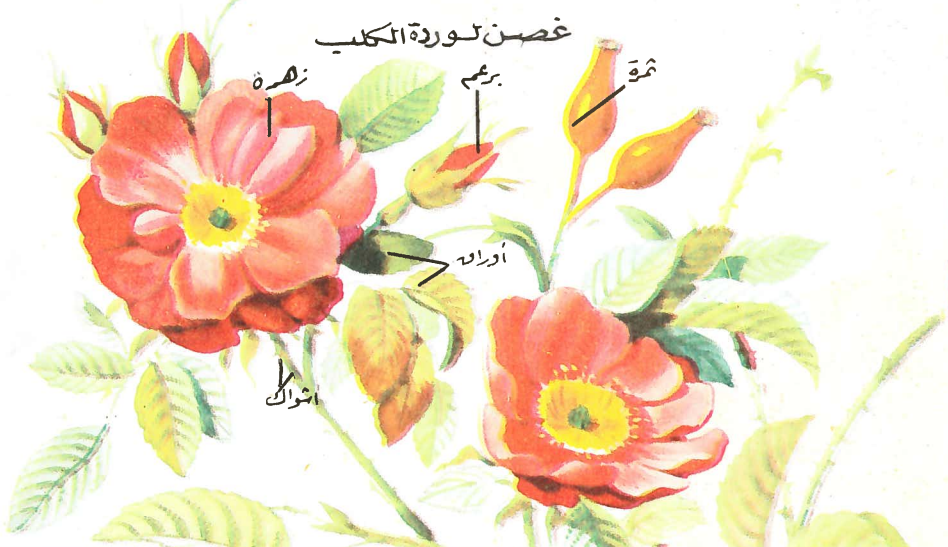 غصن لوردة الكلب
زهرة
برعم
ثمرة
أوراق
اشواك